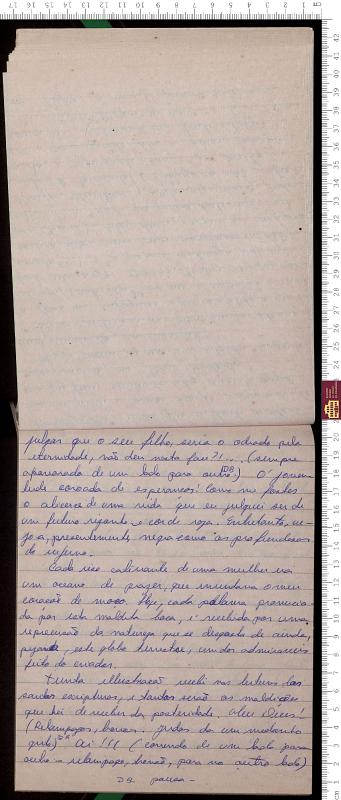 julgar que o seu filho, seria o odiado pela
eternidade, não deu nesta fase?!... (sempre
apavorado de um lado para outro) DB Ó juven
tude coroada de esperanças! Como me fostes
o alicerce de uma vida que eu julguei ser de
um futuro risonho e cor de rosa. Entretanto, ve-
jo-a, presentemente, negra como as profundezas
do inferno.
Cada riso cativante de uma mulher era
um oceano de prazer, que inundava o meu
coração de moço. Hoje, cada palavra pronuncia-
da por esta maldita boca, é recebida por uma
repercussão da natureza que se desgosta de ainda,
este globo terrestre, um dos admiráveis
feito do criador.
Tanta illustração recebi nas leituras das
sandas escripturas, e tantas serão as maldições
que hei de receber da posteridade. Meu Deus!
(Relampagos, gritos de um
grilo) DR Ai!!! (correndo de um lado para
outro - relampago, para no outro lado)
DB pausa -